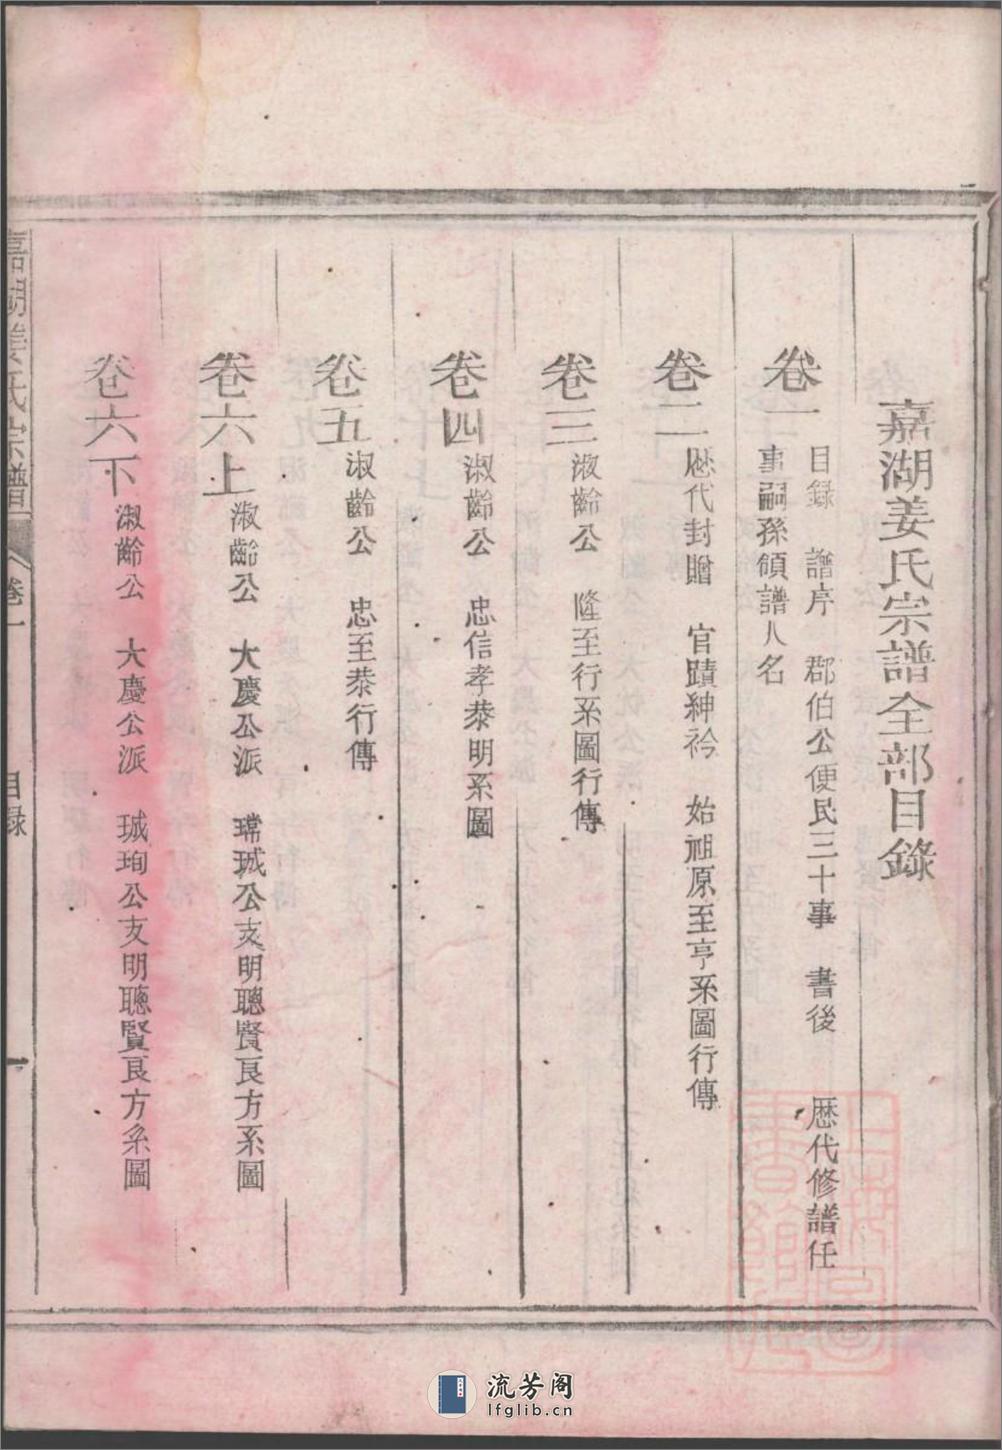 嘉湖姜氏宗譜全部目錄
卷一
目録 譜序 郡伯公便民三十事 書後 歷代修譜任
事嗣孫領譜人名
卷二 歷代封贈 官蹟紳衿 始祖原至亨系圖行傳
卷三 淑齡公 隆至行系圖行傳
卷四 淑齡公 忠信孝恭明系圖
卷五 淑齡公 忠至恭行傳
卷六上 淑齡公 大慶公派 瑺珹公支明聰賢良方系圖
卷六下 淑齡公 大慶公派 珹珣公支明聰賢良方系圖
嘉湖姜氏宗譜 卷一 目録 一
流芳阁
lfglib.cn